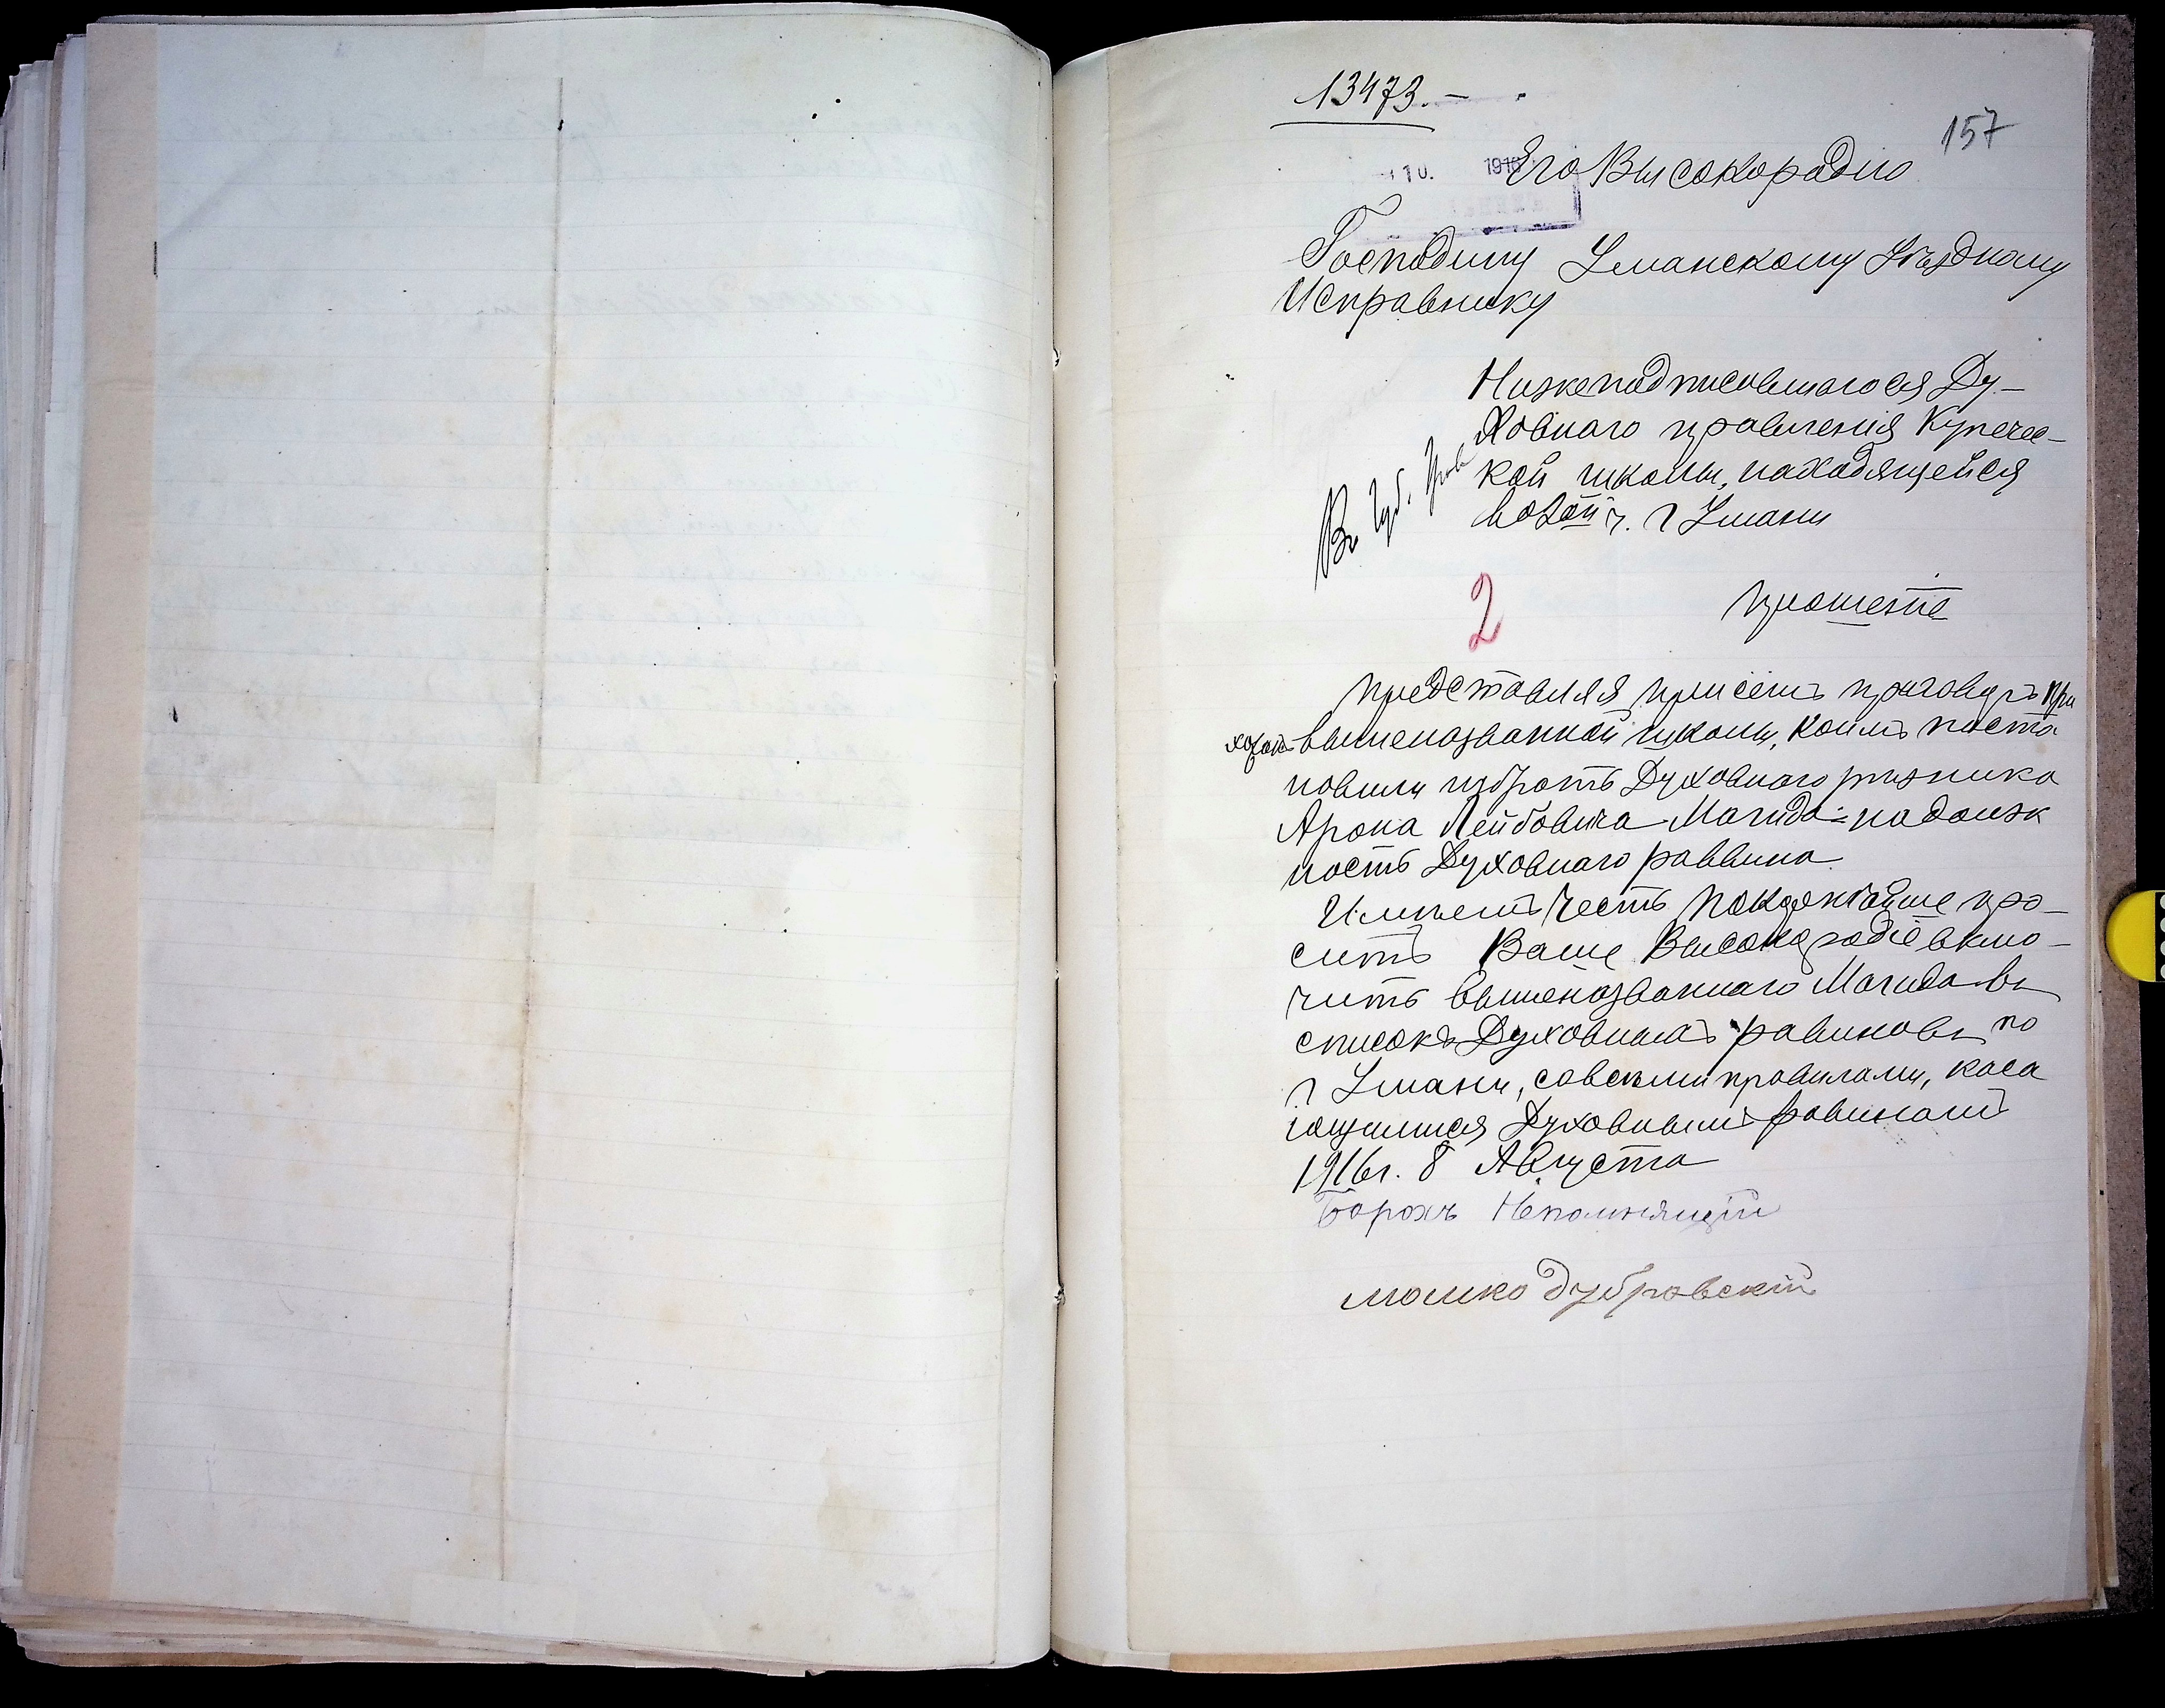 13473.-
157
10. 1916
Его Высокородію
Господину Уманскому Уѣздному
Исправнику
Нижеподписавшагося Ду-
ховнаго правленія Купечес-
кой школы, находящейся
во 2ой ч. г Умани
Въ Губ. Прав
2
прошеніе
представляя при семъ приговоръ при
хожанъ вышеназванной школы, коимъ поста
новили избрать Духовнаго рѣзника
Арона Лейбовича Магида на долж
ность Духовнаго раввина
Имѣемъ честь покорнѣйше про-
сить Ваше Высокородіе вклю-
чить вышеназваннаго Магида въ
списокъ Духовныхъ равиновъ по
г Умани, совсѣми правилами, каса
ющимися Духовнымъ равинамъ
1916г. 8 Августа
Борохъ Непомнящій
мошко Дубровскій